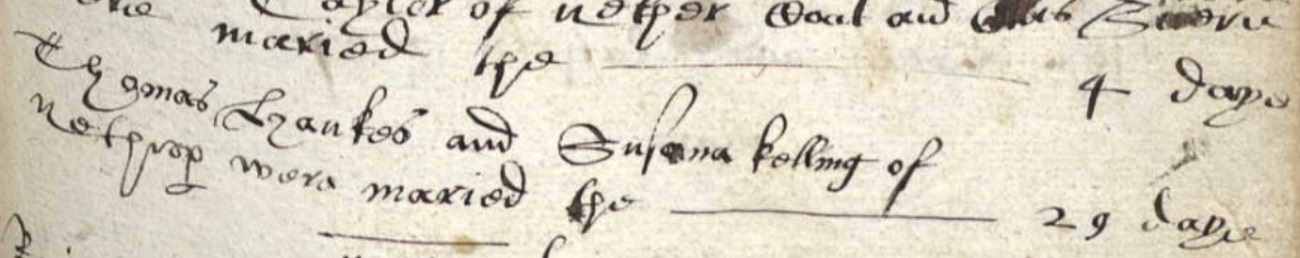 Tayler of nether Seal and
maried the 4 daye
Thomas Hankes and Susana kelling of
nethrop were maried the 29 daye